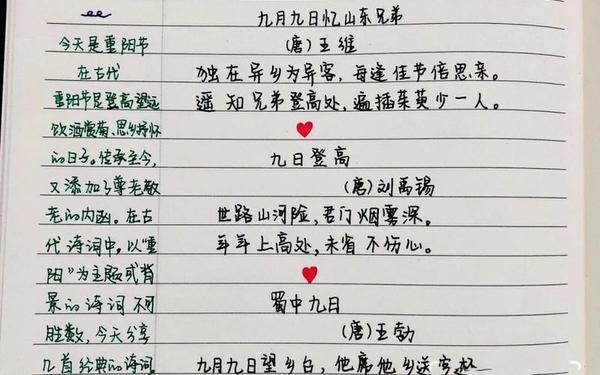 今天是重阳节
在古代
重阳节是登高望远
饮酒赏菊、思乡抒怀
的日子。传承至今,
又添加了尊老敬
老的内涵。在古
代诗词中,以“重
阳”为主题或背
景的诗词不可
胜数,今天分享
几首经典的诗词.
九月九日忆山东兄弟
(唐)王维
独在异乡为异客,每逢佳节倍思亲。
遥知兄弟登高处,遍插茱萸少一人。
九日登高
(唐)刘禹锡
世路山河险,君门烟雾深。
年年上高处,未省不伤心。
蜀中九日
(唐)王勃
九月九日望乡台,他席他乡送客杯